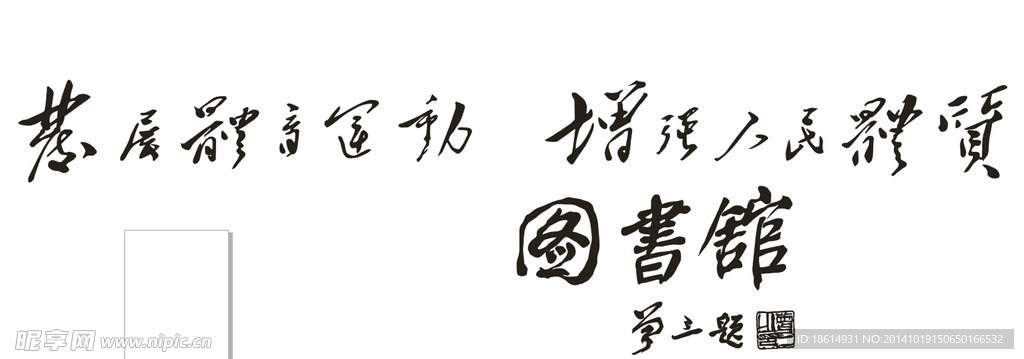 發展體育運動 增強人民體質
图書館
三題
昵享网 www.nipic.cn
ID:18614931 NO:20141019150650166532